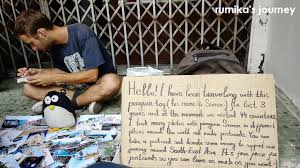 rumika's journey
Hello! I have been traveling with this
penguin toy (his name is Simon) for last 3
years and at the moment we visited 44 countries.
I took many photos with penguin Simon in different
places around the world and make postcards. You can
take a postcard and donate some money to support our
journey around South-East Asia. It's free price for
postcards so you can them as much as you want